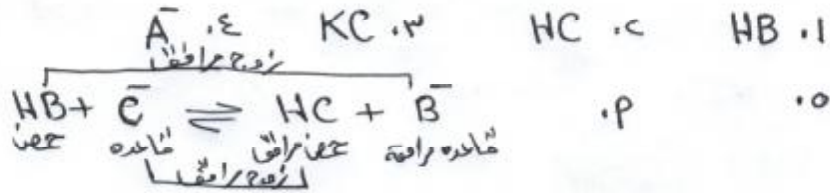 ١. HB ٢. HC ٣. KC ٤. A⁻
زوج مرافق
٥. ٩. HB + C⁻ ⇌ HC + B⁻
حمض قاعده حمض مرافق قاعده مرافقة
زوج مرافق